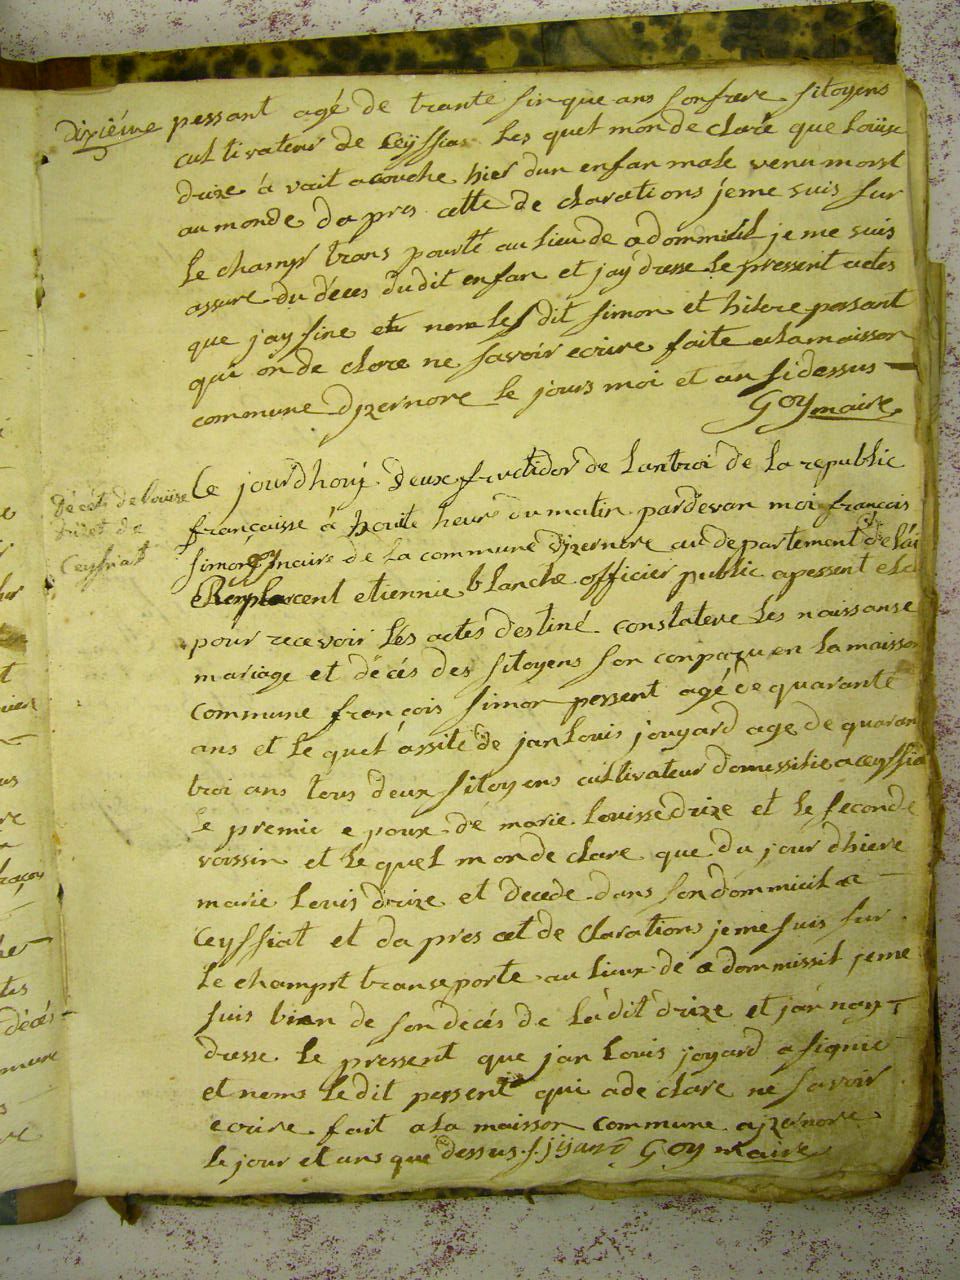 dixiéme
pessant agé de trante sinque ans son frere sitoyens
cultivateur de Ceyssia les quel mon de clare que Loüise
drize à vait acouche hier dun enfan male venu mort
au monde da pres cette de clarations je me suis sur
le champt trans porté au lieu de a dommicil je me suis
assure du déces du dit enfan et jay dresse le pressent actes
que jay sine et nom les dit simon et hilere pessant
qui on de clore ne savoir ecrire faite a la maisson
commune dizernore le jours moi et an sidessus
Goy maire
Décét de loüise
drizet de
Ceyssiat
Ce jourdhouy deux fructidor de lantroi de la republic
françaisse à houit heur du matin pardevan moi francais
simon goy maire de la commune dizernore au departement de l'ai
Remplacent etiennie blanche officier public apessent elu
pour recevoir lés actes destiné constatere les naissanse
mariage et décés des sitoyens son conparu en la maisson
commune françois simon pessent agé de quarante
ans et le quel assité de jan Louis jouyard age de quaran
troi ans tous deux sitoyens cultivateur domissilie a ceyssia
le premie e poux de marie Louisse drize et le seconde
voissin et le quel mon de clare que du jour dhiere
marie Louis drize et decede dans son dommicil a
Ceyssiat et da pres cet de claration je me suis sur
le champst transeporte au lieux de a dommissil je me
suis bien de son decés de la dit drize et jan nay
dresse le pressent que jan Louis joyard a signie
et noms le dit pessent qui a de clare ne savoir
ecrire fait a la maisson commune azernore
le jour et ans que dessus Goy maire